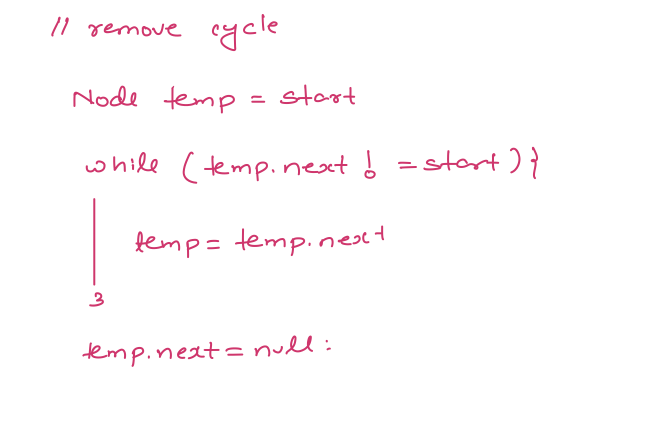 // remove cycle
Node temp = start
while (temp.next != start){
temp = temp.next
}
temp.next = null: